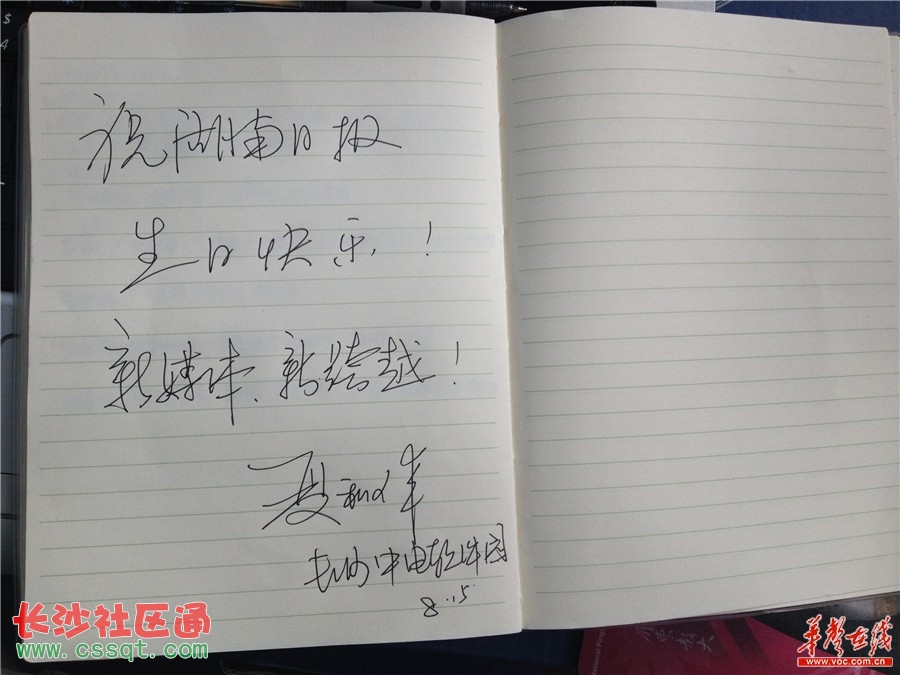 祝湖南日报
生日快乐！
新媒体、新跨越！
夏和
长沙中电软件园
8.15
长沙社区通
www.cssqt.com
华声在线
www.voc.com.cn